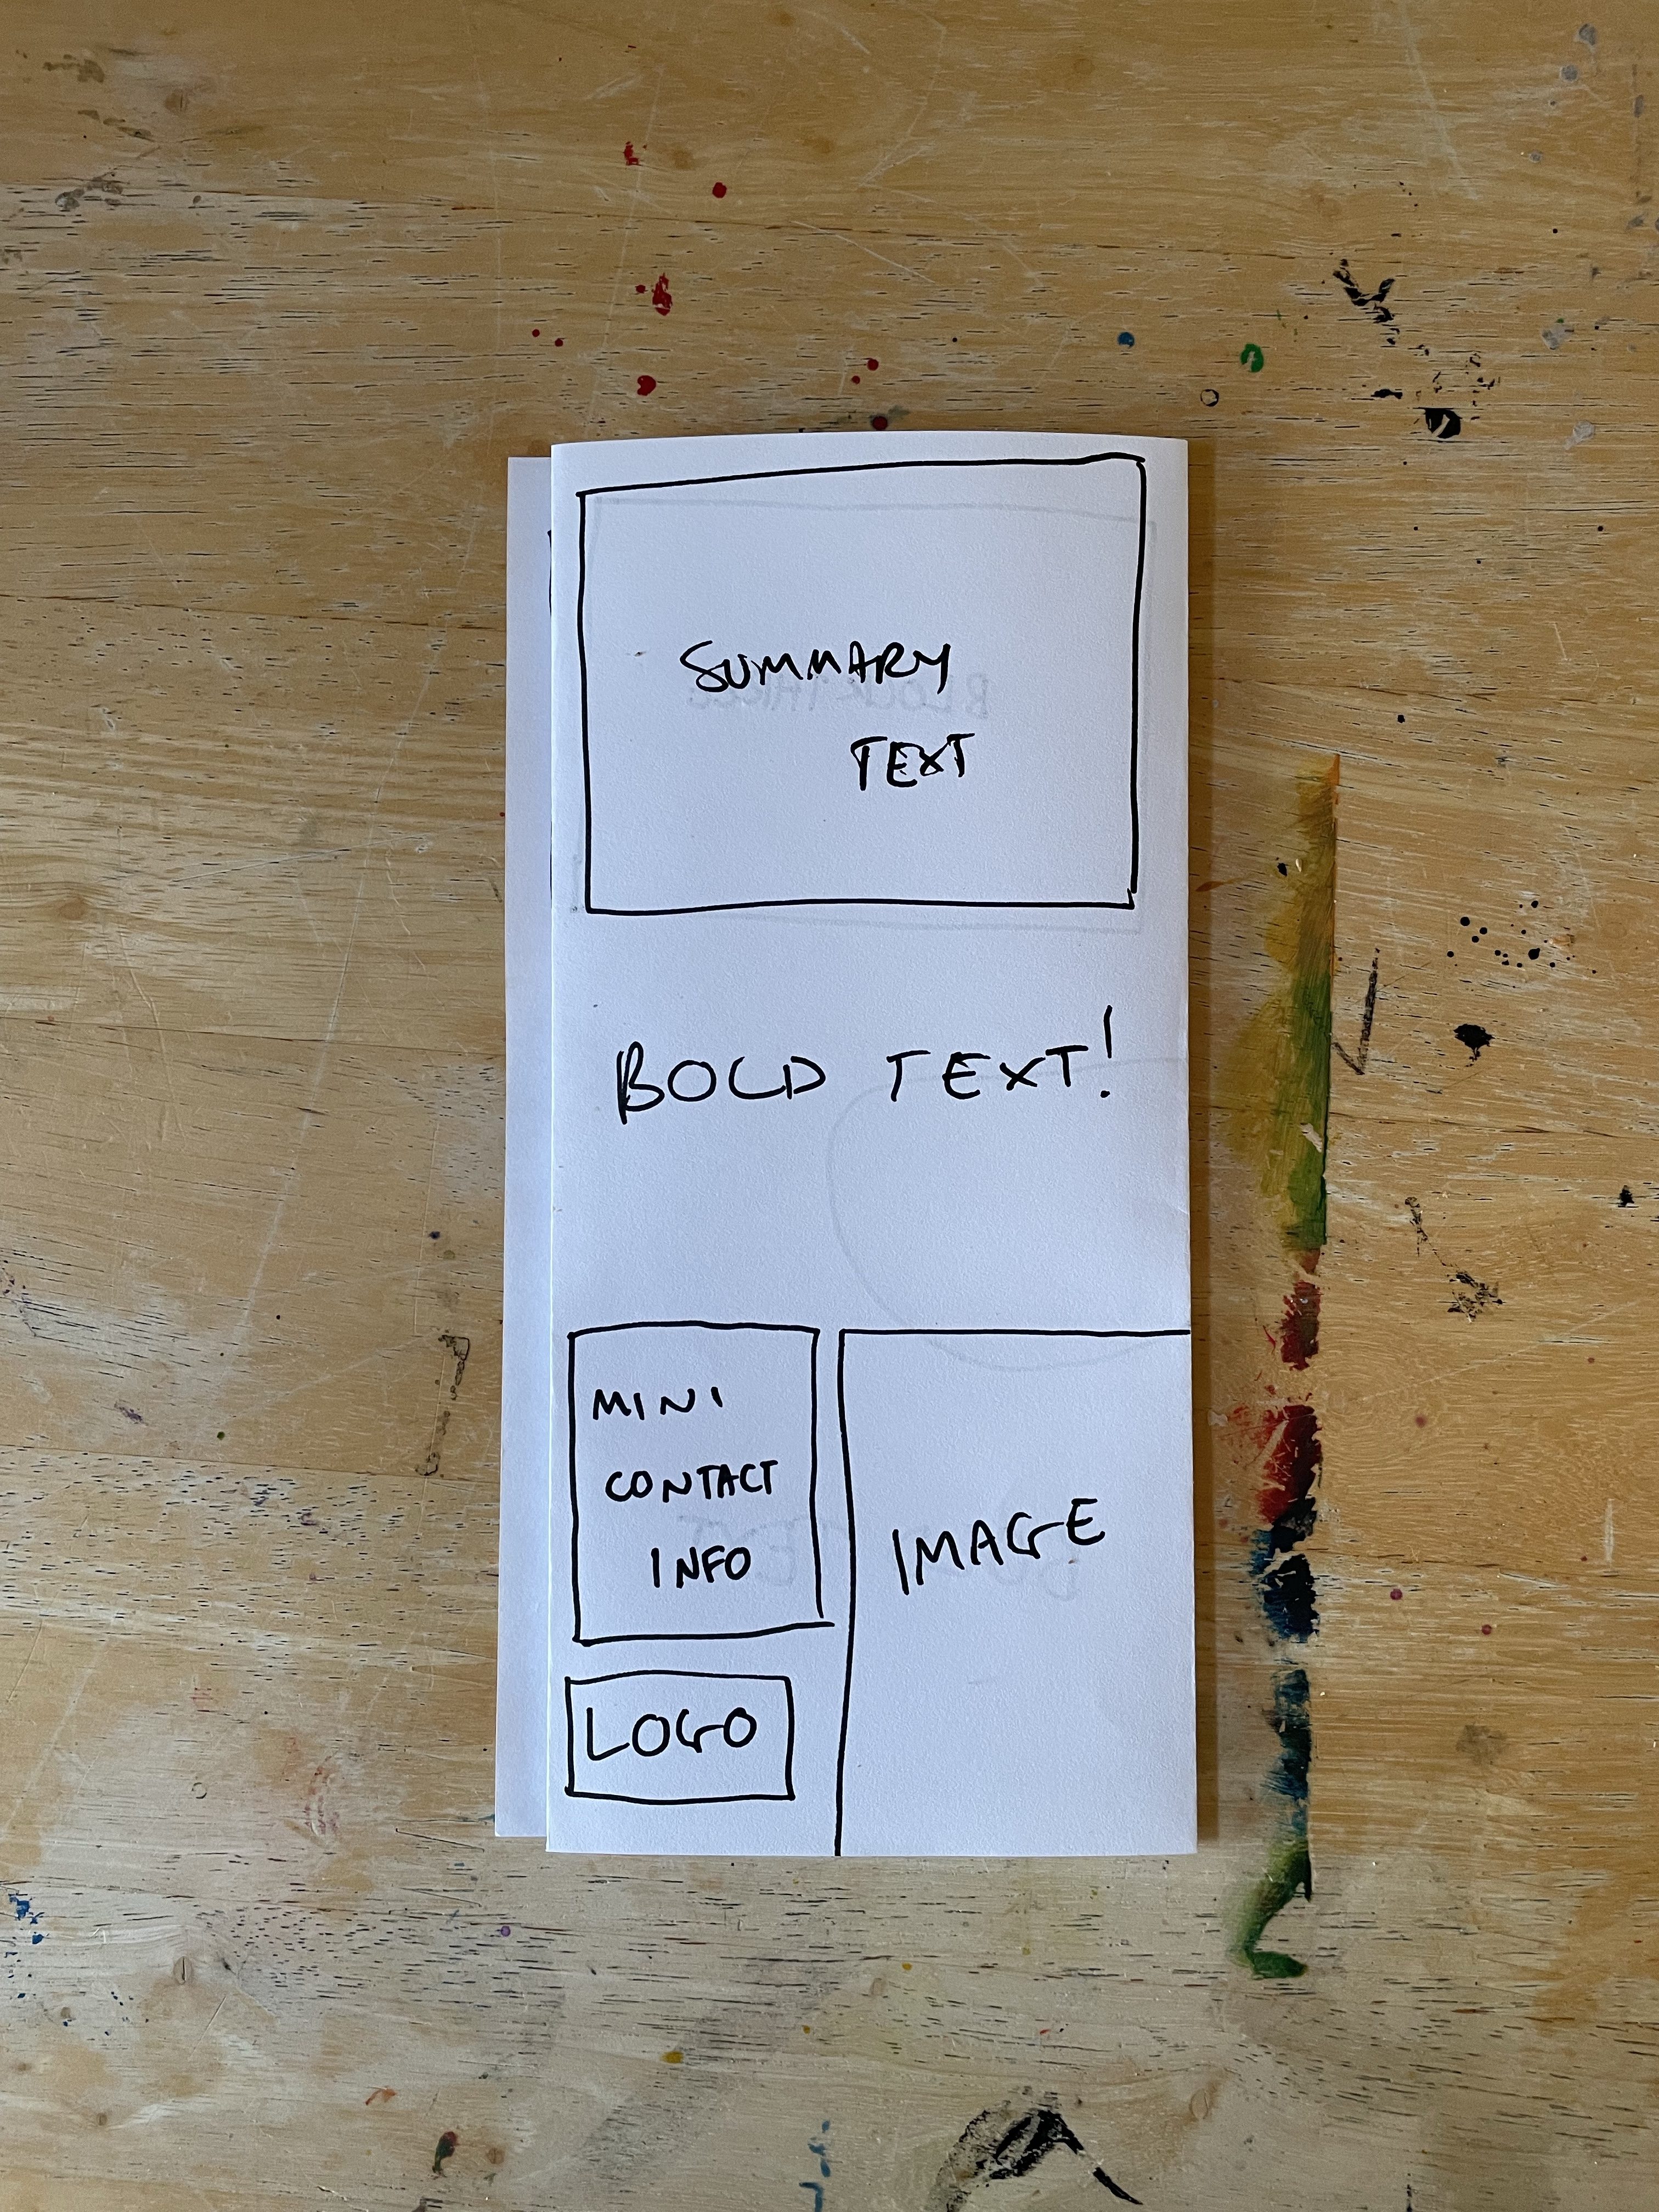 SUMMARY
TEXT
BOLD TEXT!
MINI
CONTACT
INFO
LOGO
IMAGE